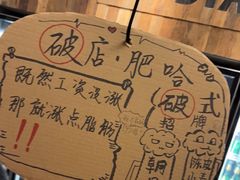 破店·肥哈
既然工资没涨
那就涨点脂肪
!!
破式
招牌
朝
陈皮